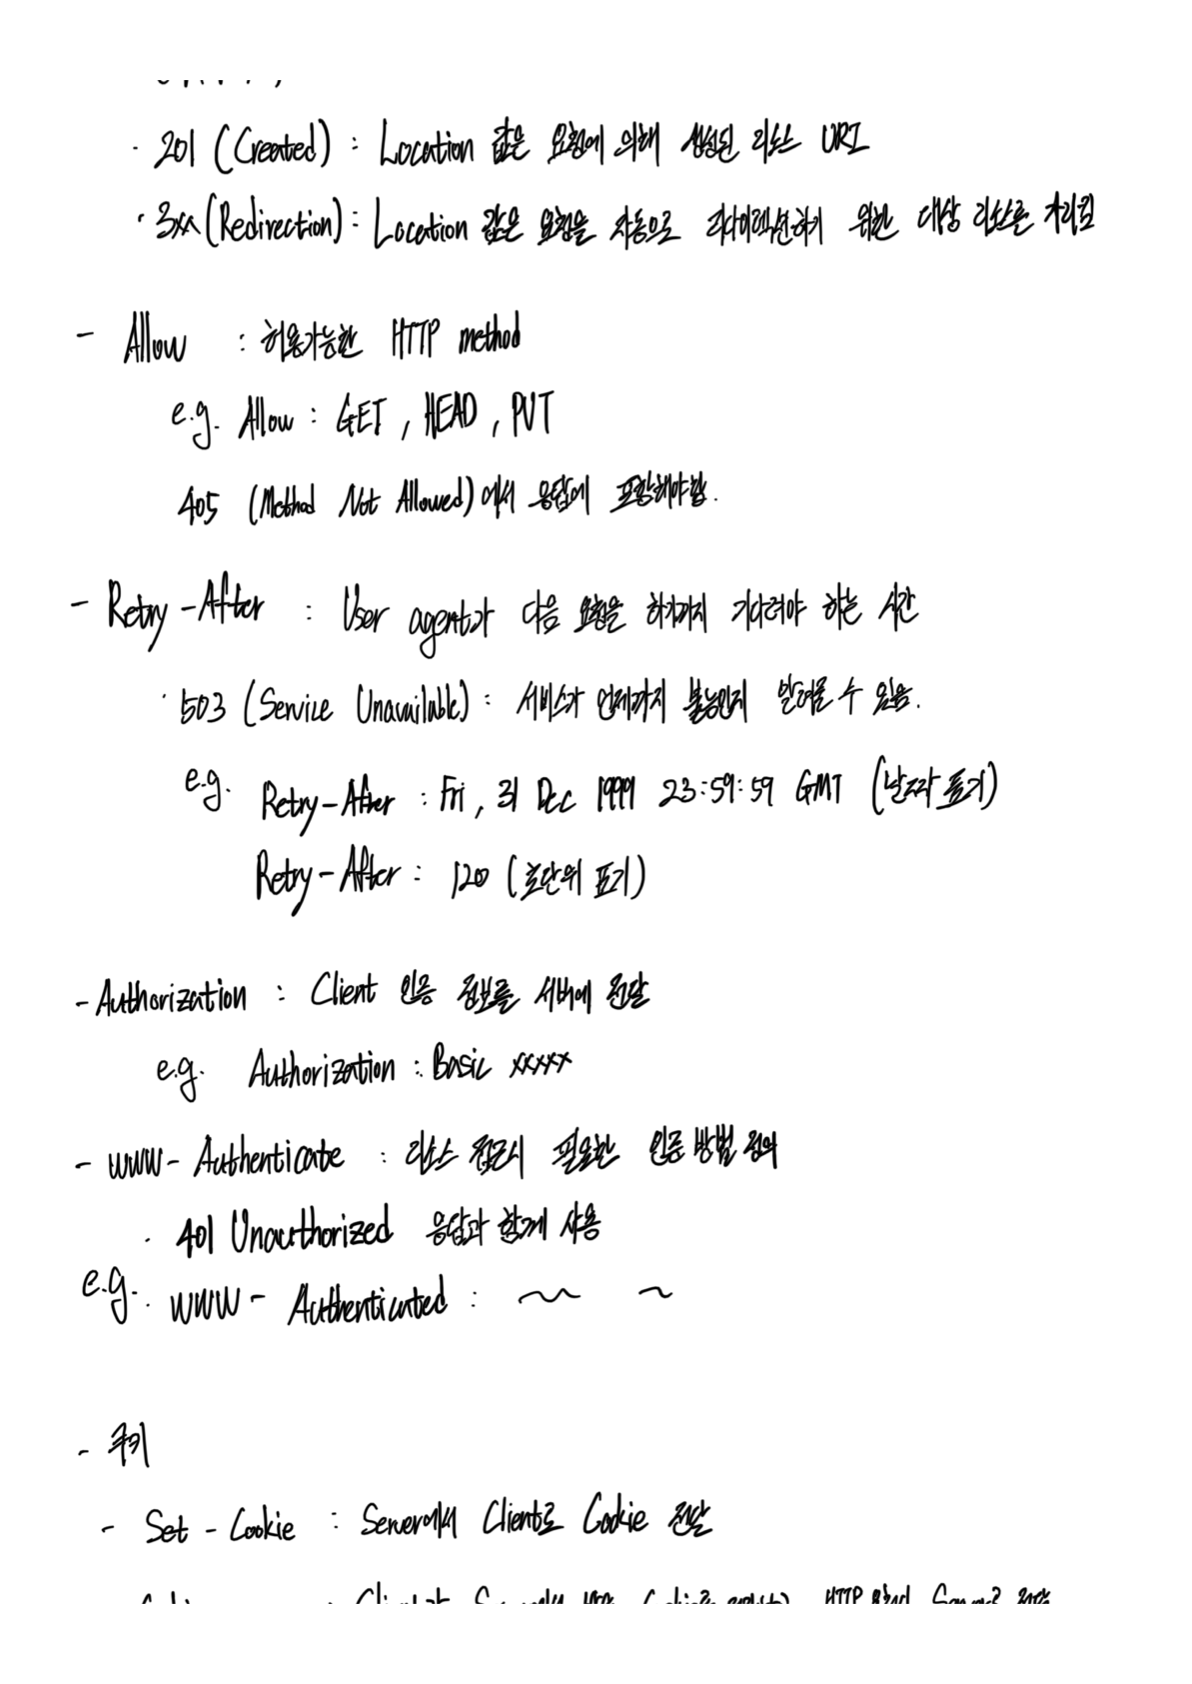 · 201 (Created) : Location 값은 요청에 의해 생성된 리소스 URI
· 3xx (Redirection) : Location 값은 요청을 자동으로 리다이렉션하기 위한 대상 리소스를 가리킴
- Allow : 허용가능한 HTTP method
e.g. Allow : GET , HEAD , PUT
405 (Method Not Allowed) 에서 응답에 포함해야함.
- Retry-After : User agent가 다음 요청을 하기까지 기다려야 하는 시간
· 503 (Service Unavailable) : 서비스가 언제까지 불능인지 알려줄 수 있음.
e.g. Retry-After : Fri, 31 Dec 1999 23:59:59 GMT (날짜 표기)
Retry-After : 120 (초단위 표기)
- Authorization : Client 인증 정보를 서버에 전달
e.g. Authorization : Basic xxxxx
- WWW-Authenticate : 리소스 접근시 필요한 인증 방법 정의
· 401 Unauthorized 응답과 함께 사용
e.g. · WWW-Authenticated : ~~ ~
- 쿠키
- Set-Cookie : Server에서 Client로 Cookie 전달